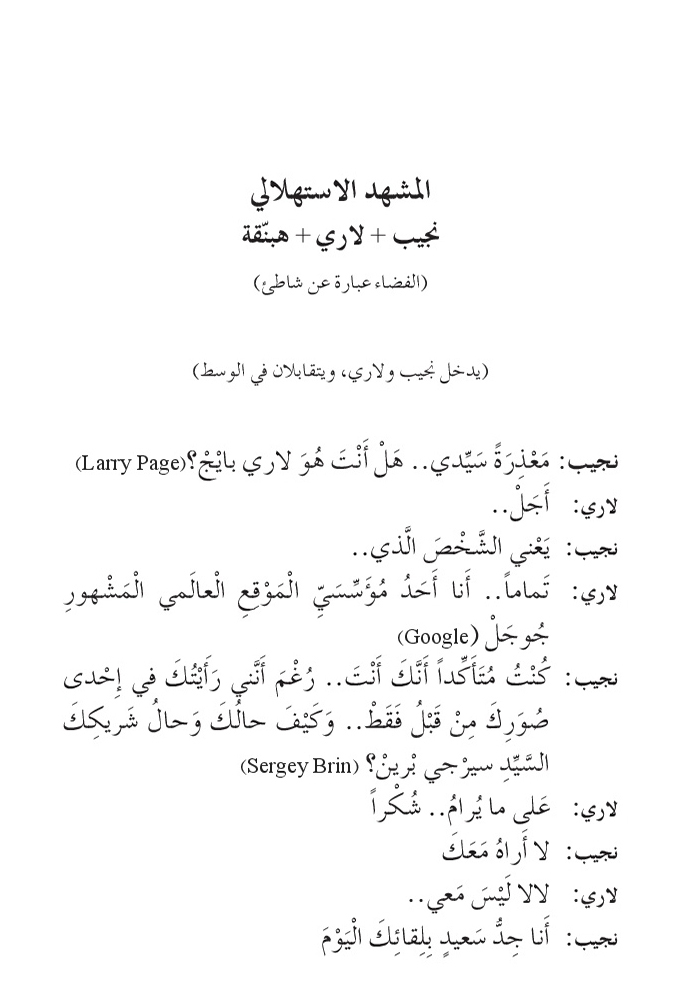 المشهد الاستهلالي
نجيب + لاري + هبنّقة
(الفضاء عبارة عن شاطئ)
(يدخل نجيب ولاري، ويتقابلان في الوسط)
نجيب: مَعْذِرَةً سَيِّدي.. هَلْ أَنْتَ هُوَ لاري بايْجْ؟(Larry Page)
لاري: أَجَلْ..
نجيب: يَعْني الشَّخْصَ الَّذي..
لاري: تَماماً.. أَنا أَحَدُ مُؤَسِّسَيِّ الْمَوْقِعِ الْعالَمي الْمَشْهورِ
جُوجَلْ (Google)
نجيب: كُنْتُ مُتَأَكِّداً أَنَّكَ أَنْتَ.. رُغْمَ أَنَّني رَأَيْتُكَ في إِحْدى
صُوَرِكَ مِنْ قَبْلُ فَقَطْ.. وَكَيْفَ حالُكَ وَحالُ شَريكِكَ
السَّيِّدِ سيرْجي بْرينْ؟ (Sergey Brin)
لاري: عَلى ما يُرامُ.. شُكْراً
نجيب: لا أَراهُ مَعَكَ
لاري: لالا لَيْسَ مَعي..
نجيب: أَنا جِدُّ سَعيدٍ بِلِقائِكَ الْيَوْمَ